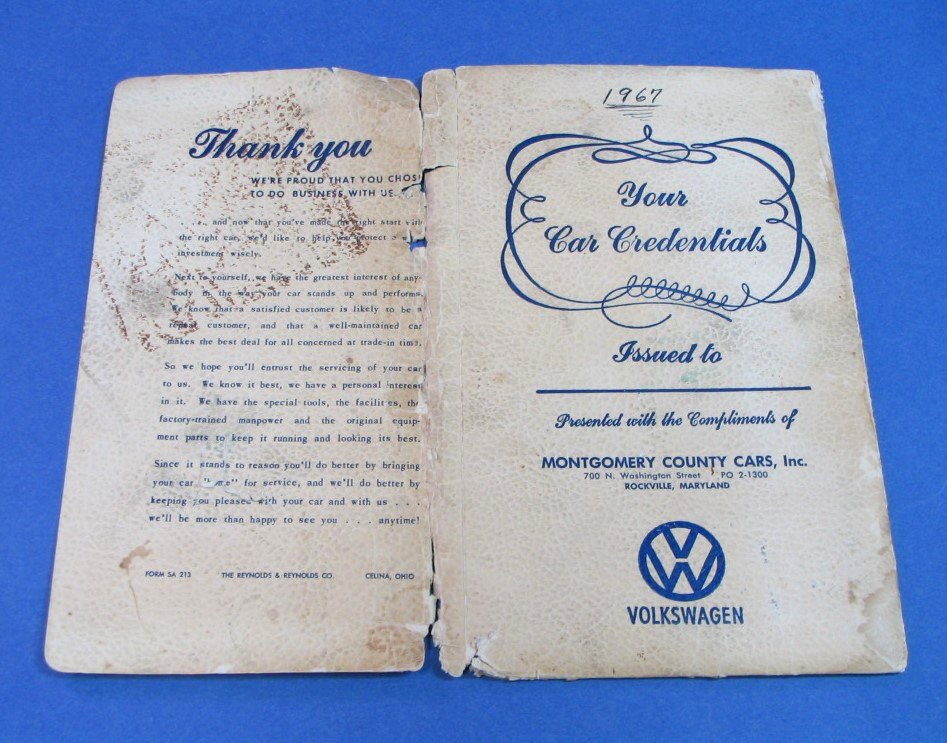 Thank you
WE'RE PROUD THAT YOU CHOS
TO DO BUSINESS WITH US.
. . . and now that you've made the right start with
the right car, we'd like to help you protect a
investment wisely.
Next to yourself, we have the greatest interest of any-
body in the way your car stands up and performs.
We know that a satisfied customer is likely to be a
repeat customer, and that a well-maintained car
makes the best deal for all concerned at trade-in time.
So we hope you'll entrust the servicing of your car
to us. We know it best, we have a personal interest
in it. We have the special tools, the facilities, the
factory-trained manpower and the original equip-
ment parts to keep it running and looking its best.
Since it stands to reason you'll do better by bringing
your car "home" for service, and we'll do better by
keeping you pleased with your car and with us . . .
we'll be more than happy to see you . . . anytime!
FORM SA 213 THE REYNOLDS & REYNOLDS CO. CELINA, OHIO
1967
Your
Car Credentials
Issued to
Presented with the Compliments of
MONTGOMERY COUNTY CARS, Inc.
700 N. Washington Street PO 2-1300
ROCKVILLE, MARYLAND
VW
VOLKSWAGEN